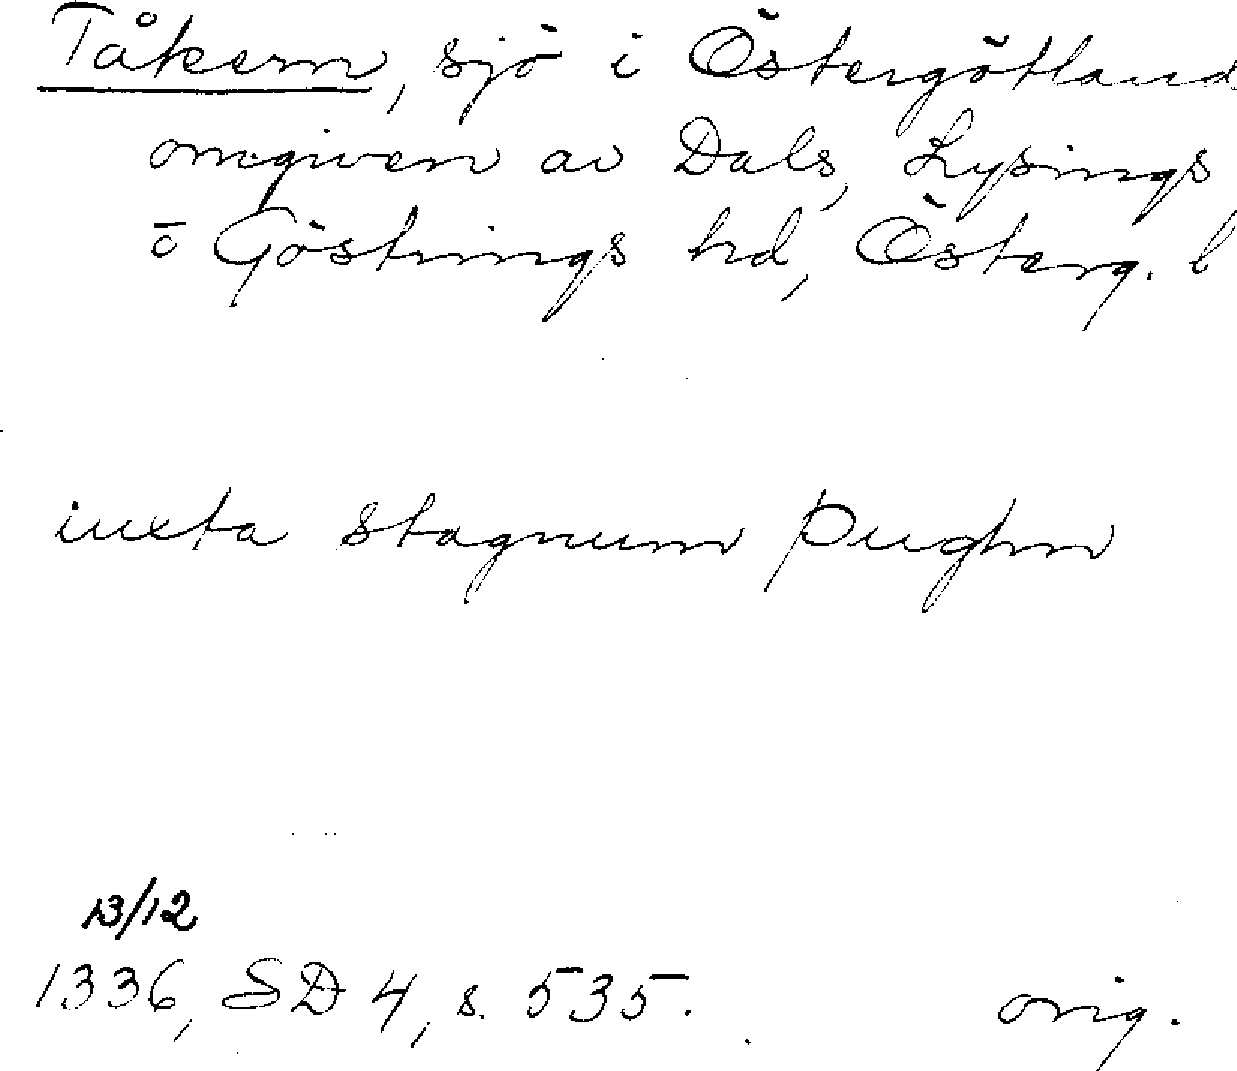 Tåkern, sjö i Östergötland
omgiven av Dals, Lysings
o Göstrings hd, Österg. l
iuxta stagnum þughn
13/12
1336, SD 4, s. 535.
orig.